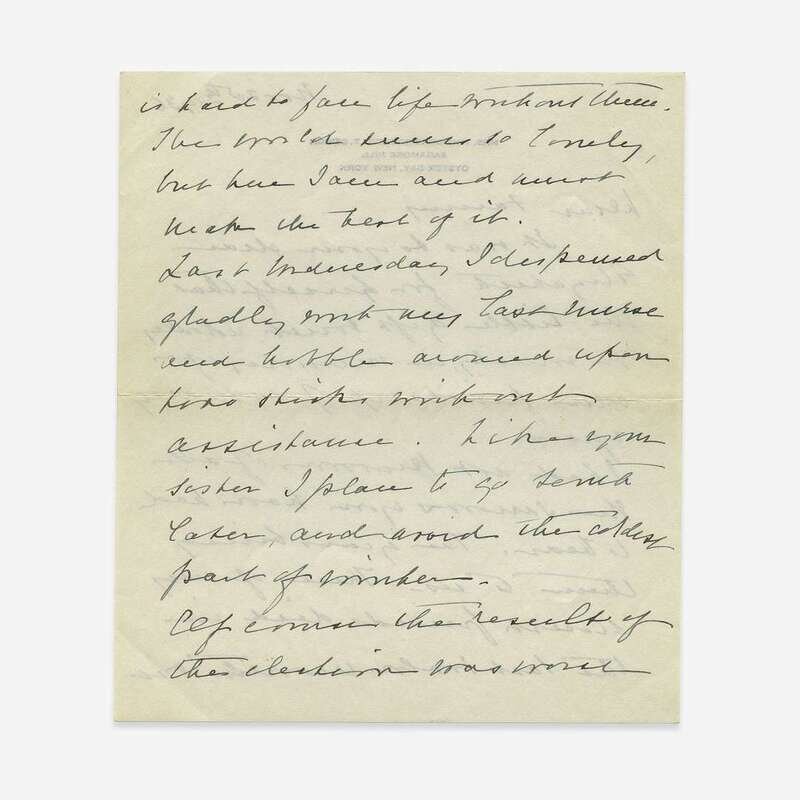 is hard to face life without them.
The world seems so lonely,
but here I am and must
make the best of it.
Last Wednesday I dispensed
gladly with my last nurse
and hobble around upon
two sticks without
assistance. Like your
sister I plan to go south
later, and avoid the coldest
part of winter.
Of course the result of
the election was worse